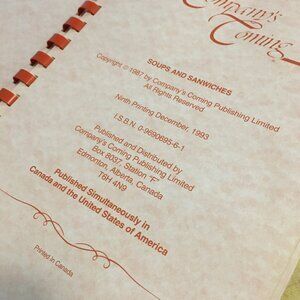 Company's
Coming
SOUPS AND SANWICHES
Copyright © 1987 by Company's Coming Publishing Limited
All Rights Reserved
Ninth Printing December, 1993
I.S.B.N. 0-9690695-6-1
Published and Distributed by
Company's Coming Publishing Limited
Box 8037, Station "F"
Edmonton, Alberta, Canada
T6H 4N9
Published Simultaneously in
Canada and the United States of America
Printed In Canada